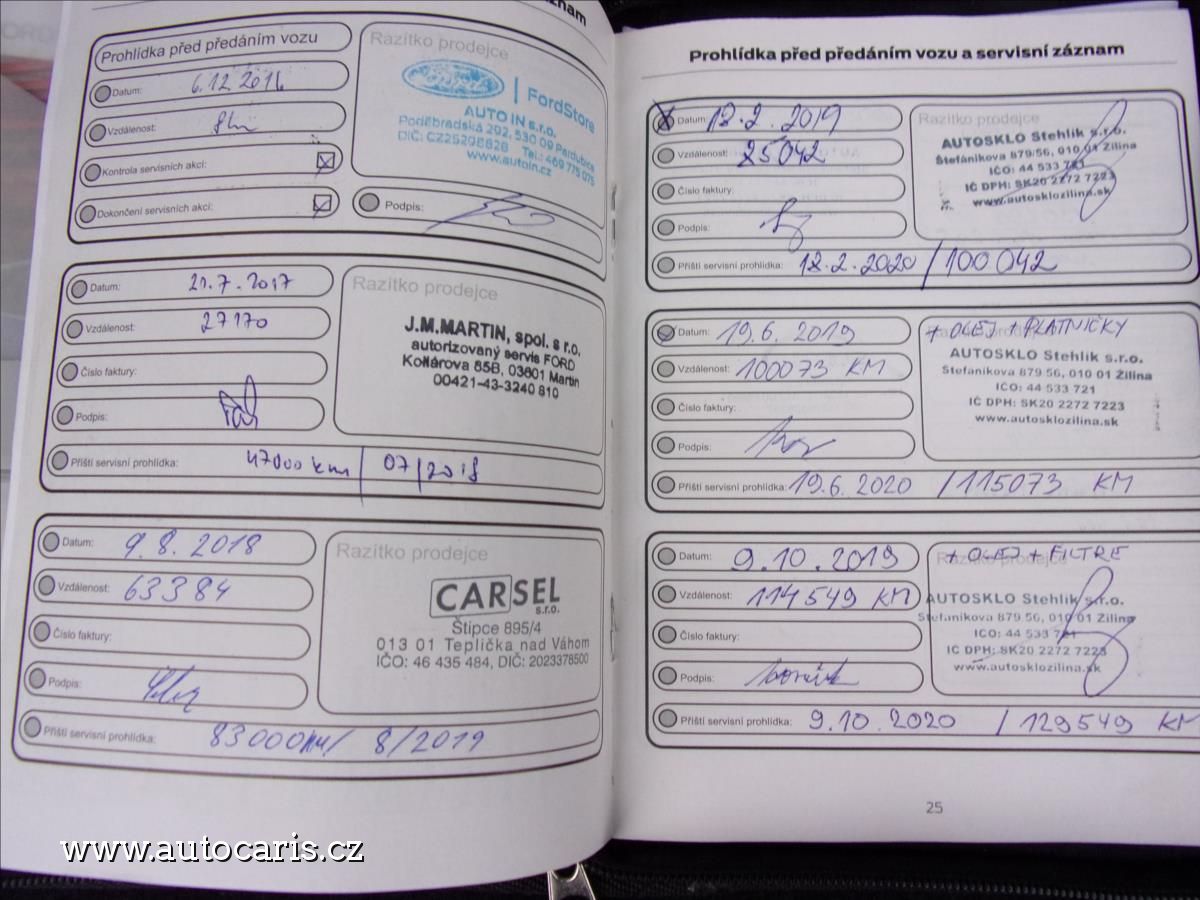 znam
Prohlídka před předáním vozu
Datum: 6.12 2016
Vzdálenost: 8km
Kontrola servisních akcí:
Dokončení servisních akcí:
Razítko prodejce
Ford | FordStore
AUTO IN s.r.o.
Poděbradská 292, 530 09 Pardubice
DIČ: CZ25298828 Tel.: 469 775 075
www.autoin.cz
Podpis:
Datum: 21.7.2017
Vzdálenost: 27170
Číslo faktury:
Podpis:
Příští servisní prohlídka: 47000 km / 07/2018
Razítko prodejce
J.M.MARTIN, spol. s r.o.
autorizovaný servis FORD
Kollárova 85B, 03601 Martin
00421-43-3240 810
Datum: 9.8.2018
Vzdálenost: 63384
Číslo faktury:
Podpis:
Příští servisní prohlídka: 83000KM/ 8/2019
Razítko prodejce
CARSEL
s.r.o.
Štipce 895/4
013 01 Teplička nad Váhom
IČO: 46 435 484, DIČ: 2023378500
Prohlídka před předáním vozu a servisní záznam
Datum: 18.2.2019
Vzdálenost: 25042
Číslo faktury:
Podpis:
Příští servisní prohlídka: 18.2.2020 /100042
Razítko prodejce
AUTOSKLO Stehlík s.r.o.
Štefánikova 879/56, 010 01 Žilina
IČO: 44 533 721
IČ DPH: SK20 2272 7223
www.autosklozilina.sk
Datum: 19.6.2019
Vzdálenost: 100073 KM
Číslo faktury:
Podpis:
Příští servisní prohlídka: 19.6.2020 /115073 KM
+ OLEJ + PLATNIČKY
AUTOSKLO Stehlík s.r.o.
Štefánikova 879 56, 010 01 Žilina
IČO: 44 533 721
IČ DPH: SK20 2272 7223
www.autosklozilina.sk
Datum: 9.10.2019
Vzdálenost: 114549 KM
Číslo faktury:
Podpis:
Příští servisní prohlídka: 9.10.2020 /129549 KM
+ OLEJ + FILTRE
Razítko prodejce
AUTOSKLO Stehlík s.r.o.
Štefánikova 879 56, 010 01 Žilina
IČO: 44 533 721
IČ DPH: SK20 2272 7223
www.autosklozilina.sk
25
www.autocaris.cz